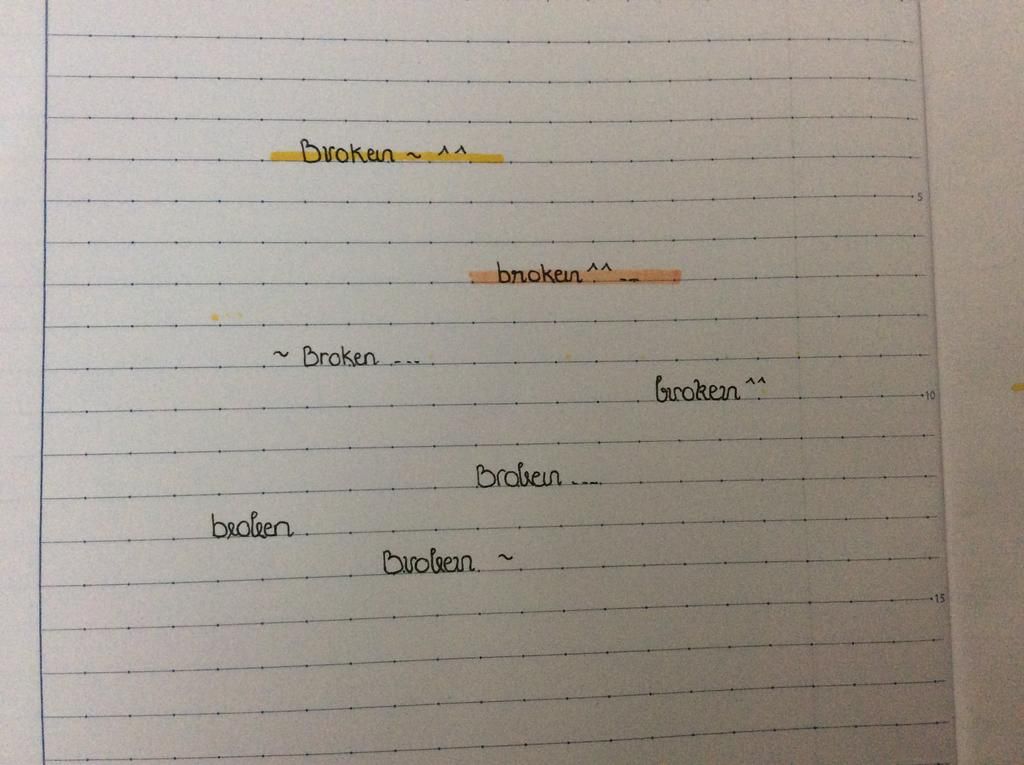 Broken ~ ^^
5
broken ^^ ...
~ Broken ...
broken ^^
10
Broken ....
broken
Broken. ~
15